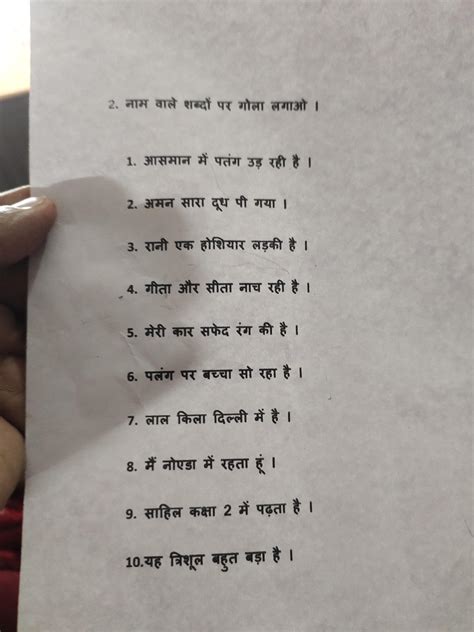 2. नाम वाले शब्दों पर गोला लगाओ ।
1. आसमान में पतंग उड़ रही है ।
2. अमन सारा दूध पी गया ।
3. रानी एक होशियार लड़की है ।
4. गीता और सीता नाच रही है ।
5. मेरी कार सफेद रंग की है ।
6. पलंग पर बच्चा सो रहा है ।
7. लाल किला दिल्ली में है ।
8. मैं नोएडा में रहता हूं ।
9. साहिल कक्षा 2 में पढ़ता है ।
10.यह त्रिशूल बहुत बड़ा है ।